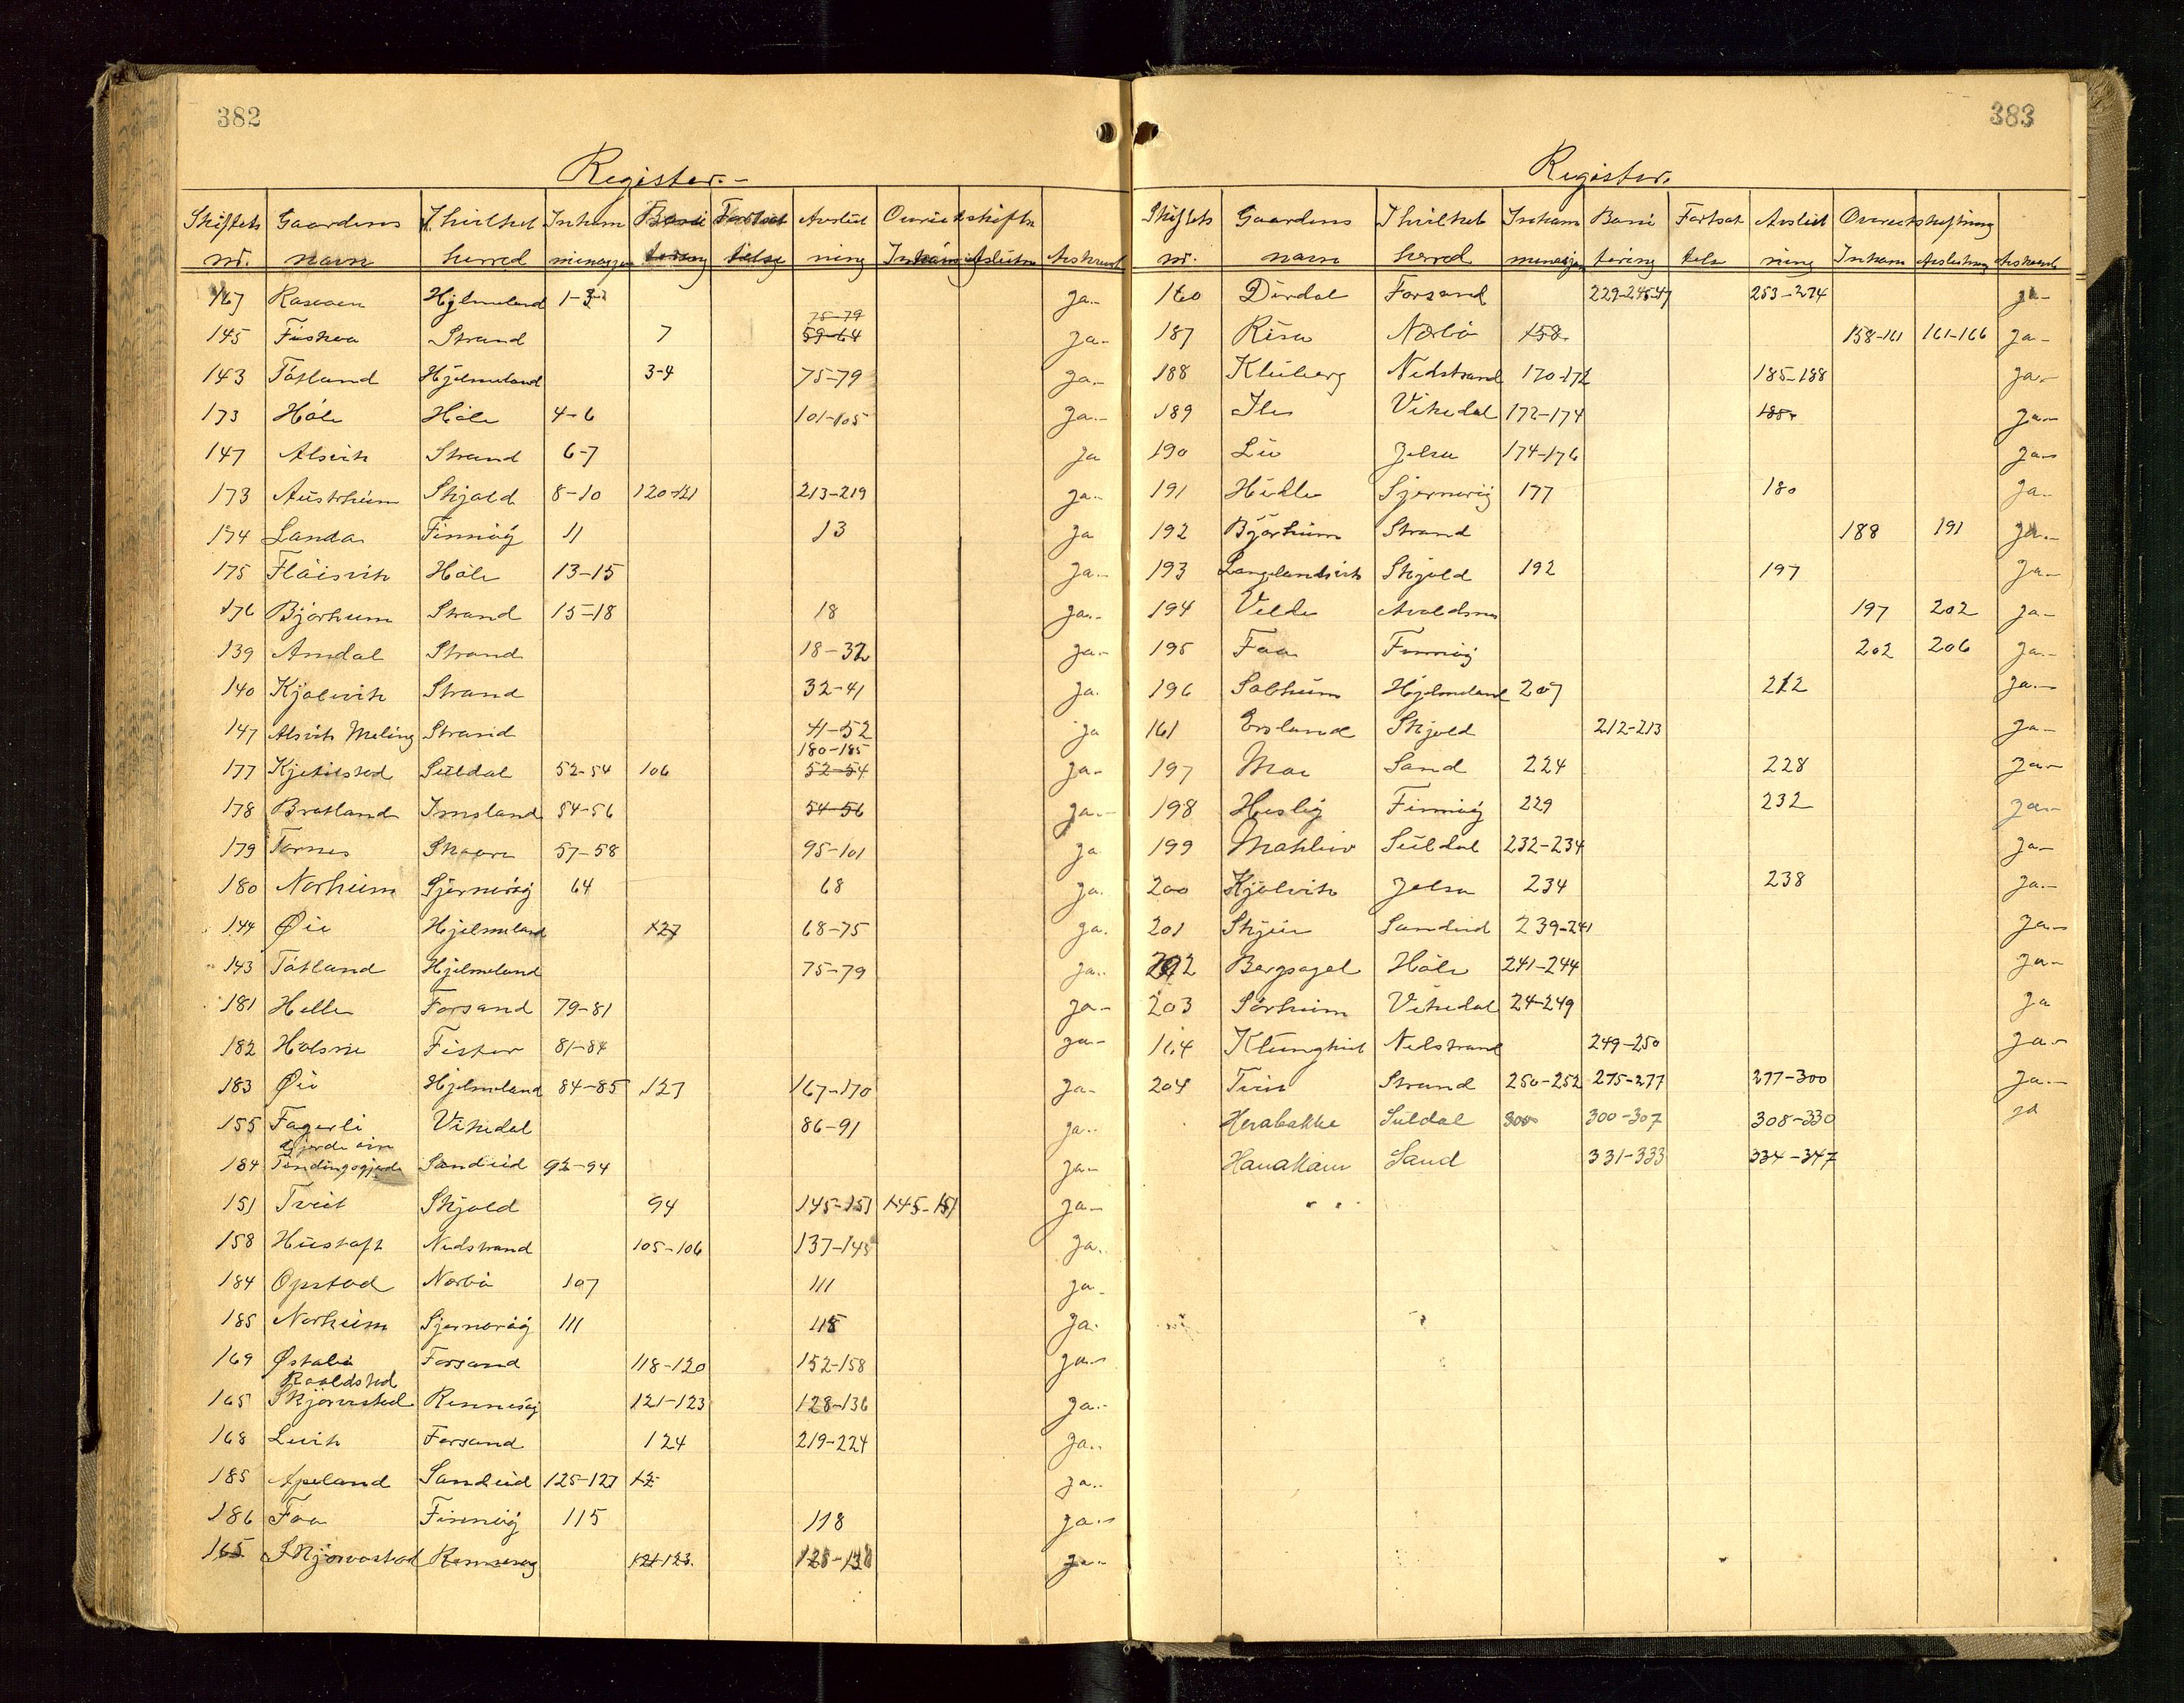 382
Register.-
Skiftets Gaardens I hvilket Inkom Boni Fortsat Avslut Overutskiftn
nr. navn herred minasjon tering telse ning Inkom Avslutn Avskrevet
167 Hjelmeland 1-3 ja-
75-79
145 Fiskaa Strand 7 59-64 ja-
143 Tøtland Hjelmeland 3-4 75-79 ja-
173 Høle Høle 4-6 101-105 ja-
147 Alsvik Strand 6-7 ja
173 Austrheim Skjold 8-10 120-121 213-219 ja-
174 Landa Finnøy 11 13 ja
175 Fløisvik Høle 13-15 ja-
176 Bjørheim Strand 15-18 18 ja-
139 Amdal Strand 18-32 ja-
140 Kjølevik Strand 32-41 ja-
147 Alsvik Meling Strand 41-52 ja
180-185
177 Kjetilstad Suldal 52-54 106 52-54 ja-
178 Bratland Imsland 54-56 54-56 ja-
179 Tornes Skaare 57-58 95-101 ja
180 Norheim Sjernerøy 64 68 ja-
144 Øie Hjelmeland 127 68-75 ja.
143 Tøtland Hjelmeland 75-79 ja.
181 Helle Forsand 79-81 ja-
182 Fister 81-84 ja-
183 Øie Hjelmeland 84-85 127 167-170 ja-
155 Fagerli Vikedal 86-91 ja-
184 Sandeid 92-94 ja-
151 Tveit Skjold 94 145-151 145-151 ja-
158 Hustoft Nedstrand 105-106 137-145 ja.
184 Opstad Nærbø 107 111 ja-
185 Norheim Sjernerøy 111 115 ja.
169 Østabø Forsand 118-120 152-158 ja-
Roaldstad
165 Skjørvestad Rennesøy 121-123 128-136 ja-
168 Levik Forsand 124 219-224 ja-
185 Apeland Sandeid 125-127 12 ja-
186 Faa Finnøy 115 118 ja-
165 Skjørvestad Rennesøy 121-123. 128-138 ja-
383
Register.
Skiftets Gaardens I hvilket Inkom Boni Fortsat Avslut Overutskiftning
nr. navn herred minasjon tering telse ning Inkom Avslutning Avskrevet
160 Dirdal Forsand 229-245-47 253-274 ja-
187 Risa Nærbø 158 158-161 161-166 ja-
188 Kleiberg Nedstrand 170-172 185-188 ja-
189 Ile Vikedal 172-174 185 ja-
190 Li Jelsa 174-176 ja-
191 Helle Sjernerøy 177 180 ja-
192 Bjørheim Strand 188 191 ja-
193 Langelandsvik Skjold 192 197 ja-
194 Velde Avaldsnes 197 202 ja-
195 Faa Finnøy 202 206 ja-
196 Solheim Hjelmeland 207 212 ja-
161 Ersland Skjold 212-213 ja-
197 Moe Sand 224 228 ja-
198 Hesby Finnøy 229 232 ja-
199 Suldal 232-234 ja-
200 Kjølvik Jelsa 234 238 ja-
201 Skjeie Sandeid 239-241 ja-
202 Bergsagel Høle 241-244 ja-
203 Sørheim Vikedal 24-249 ja
164 Nedstrand 249-250 ja-
204 Tveit Strand 250-252 275-277 277-300 ja-
Herabakke Suldal 300 300-307 308-330 ja
Sand 331-333 334-347